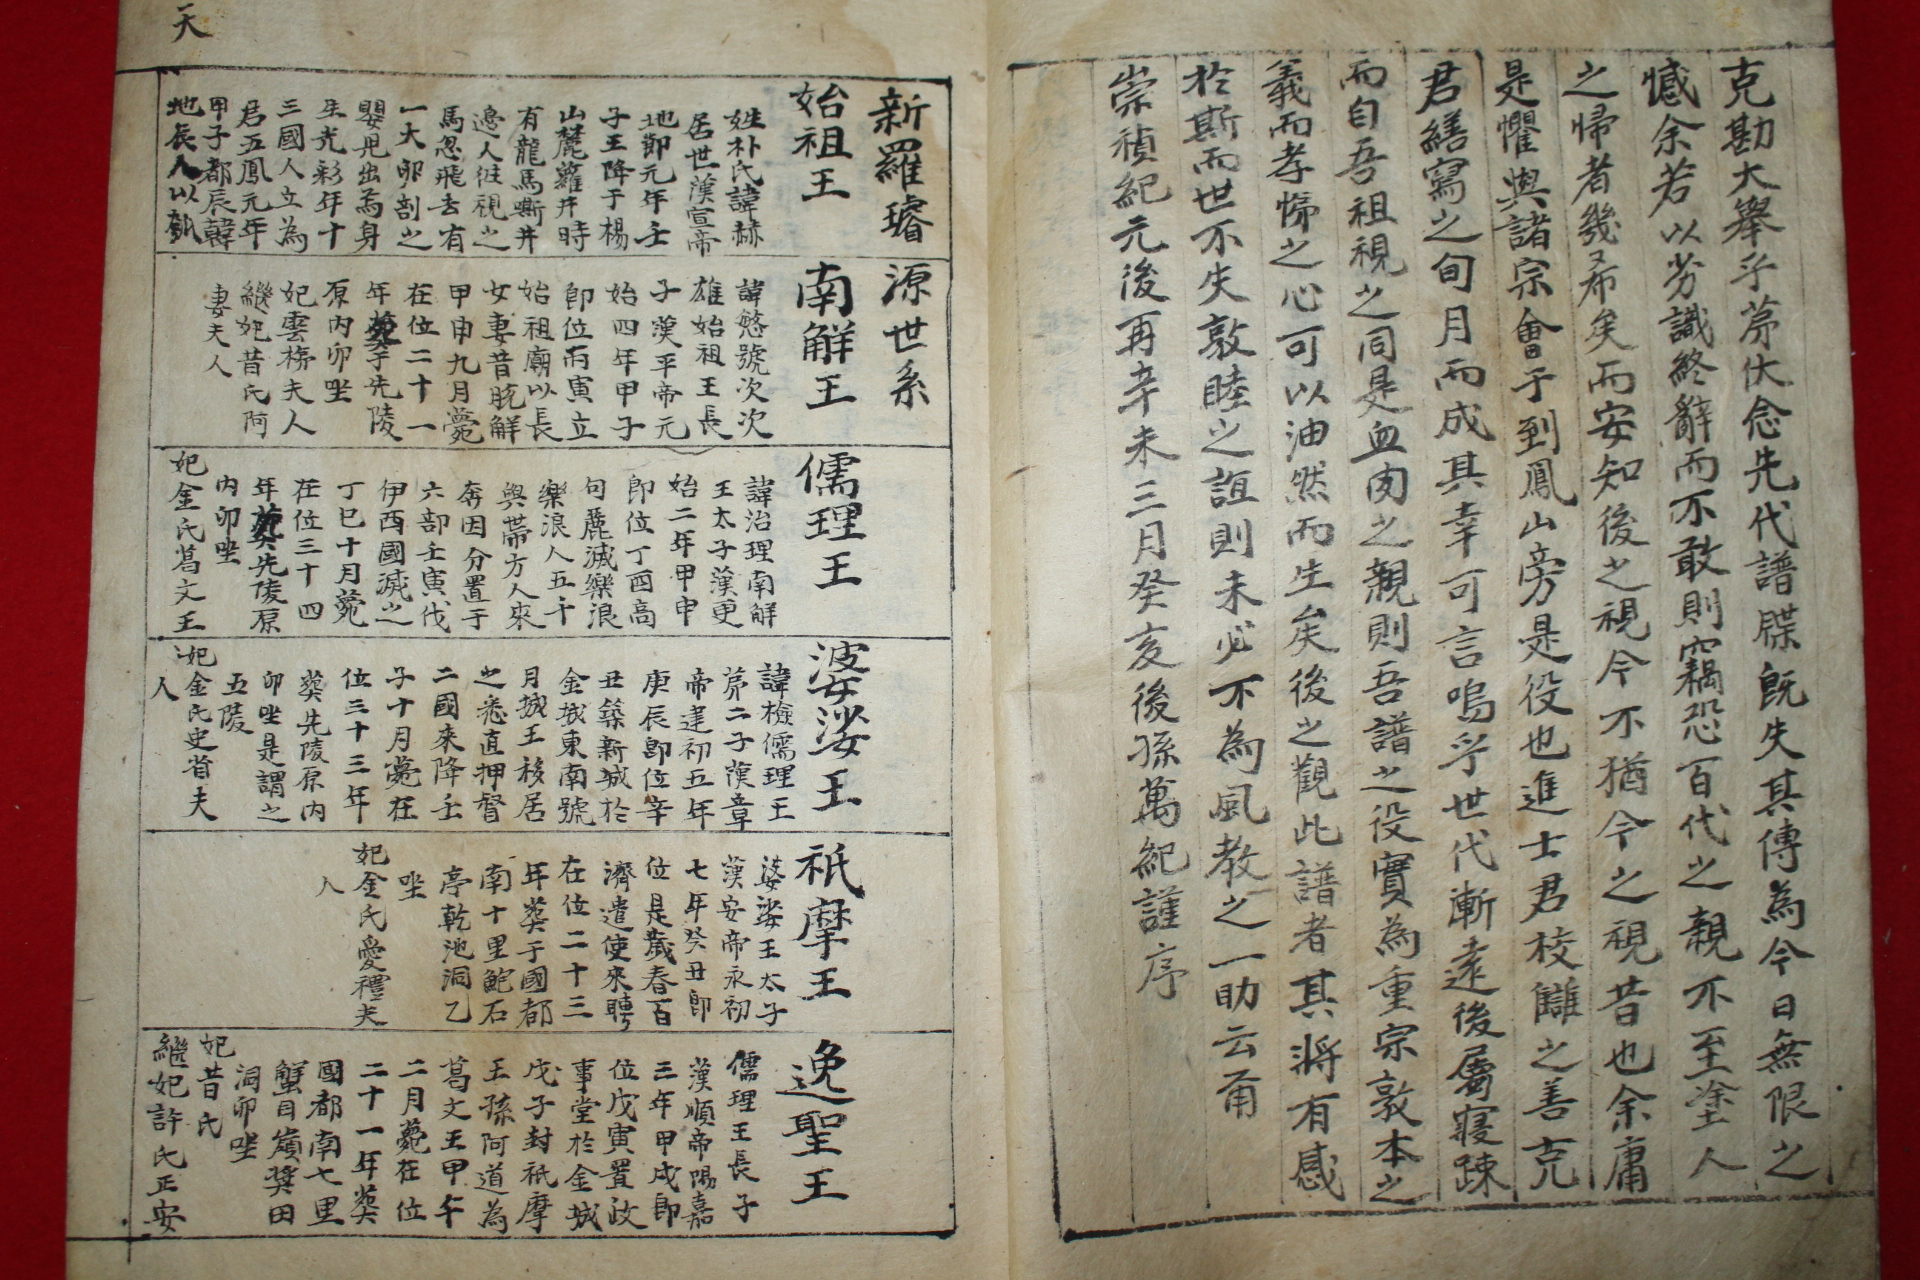 克勘大擧乎苐伏念先代譜牒旣失其傳為今日無限之
憾余若以劣識終辭而不敢則竊恐百代之親不至塗人
之帰者幾希矣而安知後之視今不猶今之視昔也余庸
是懼與諸宗會于到鳳山旁是役也進士君校讎之善克
君繕寫之旬月而成其幸可言嗚乎世代漸遠後屬寢踈
而自吾祖視之同是血肉之親則吾譜之役實為重宗敦本之
義而孝悌之心可以油然而生矣後之觀此譜者其將有感
於斯而世不失敦睦之誼則未必不為風教之一助云甭
崇禎紀元後再辛未三月癸亥後孫萬紀謹序
天
新羅璿源世系
始祖王
姓朴氏諱赫
居世漢宣帝
地節元年壬
子王降于楊
山麓蘿井時
有龍馬嘶井
邊人徃視之
馬忽飛去有
一大卵剖之
嬰兒出焉身
生光彩年十
三國人立為
君五鳳元年
甲子都辰韓
地辰人以瓠
南解王
諱慜號次次
雄始祖王長
子漢平帝元
始四年甲子
卽位丙寅立
始祖廟以長
女妻昔脫解
甲申九月薨
在位二十一
年葬于先陵
原內卯坐
妃雲梯夫人
繼妃昔氏阿
妻夫人
儒理王
諱治理南解
王太子漢更
始二年甲申
卽位丁酉高
句麗滅樂浪
樂浪人五千
與帶方人來
奔因分置于
六部壬寅伐
伊西國滅之
丁巳十月薨
在位三十四
年葬先陵原
內卯坐
妃金氏葛文王
婆娑王
諱檢儒理王
苐二子漢章
帝建初五年
庚辰卽位辛
丑築新城於
金城東南號
月城王移居
之悉直押督
二國來降壬
子十月薨在
位三十三年
葬先陵原內
卯坐是謂之
五陵
妃金氏史省夫
人
祇摩王
婆娑王太子
漢安帝永初
七年癸丑卽
位是歲春百
濟遣使來聘
在位二十三
年葬于國都
南十里鮑石
亭乾池洞乙
坐
妃金氏愛禮夫
人
逸聖王
儒理王長子
漢順帝陽嘉
三年甲戌卽
位戊寅置政
事堂於金城
戊子封祇摩
王孫阿道為
葛文王甲午
二月薨在位
二十一年葬
國都南七里
蟹目嶺奬田
洞卯坐
妃昔氏
繼妃許氏正安